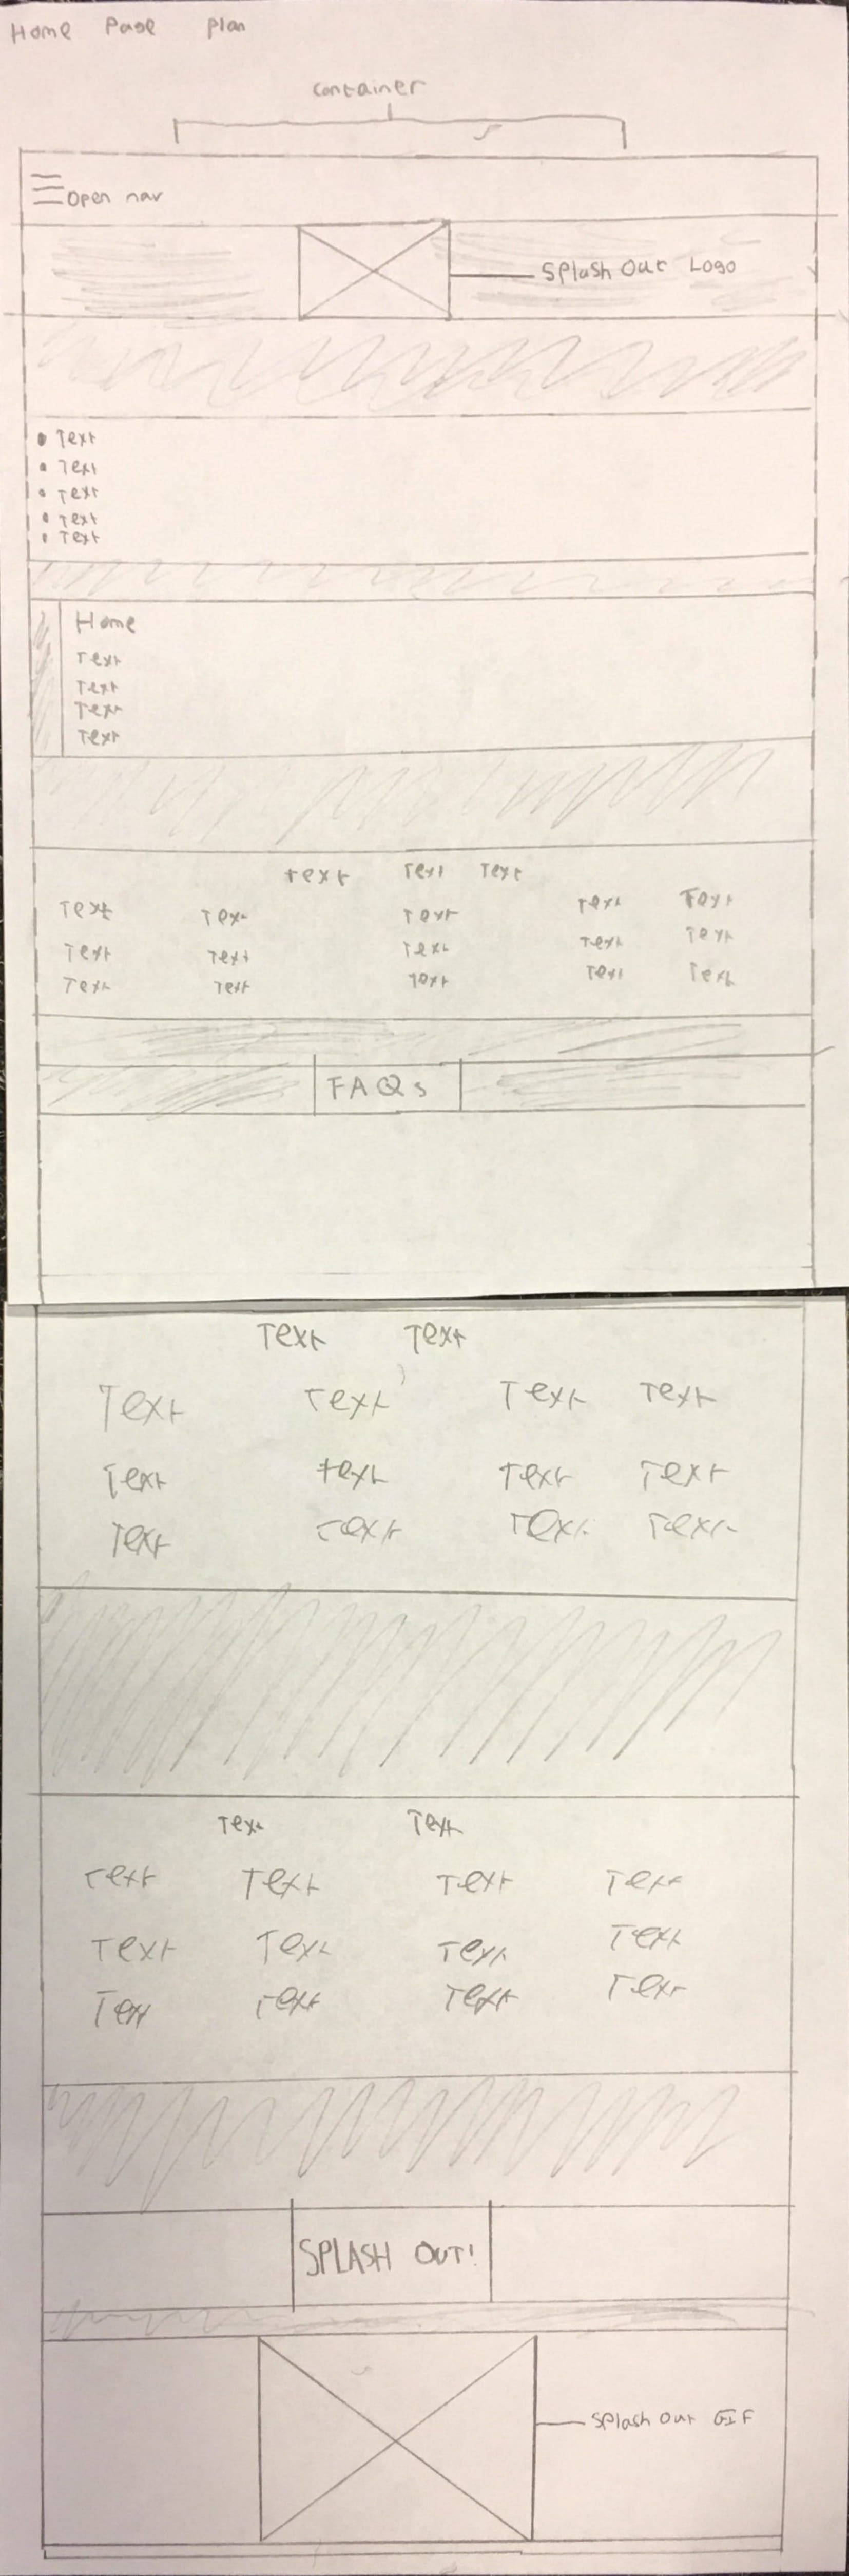 Home Page Plan
Container
Open nav
Splash Out Logo
• Text
• Text
• Text
• Text
• Text
Home
Text
Text
Text
Text
Text Text Text
Text Text Text Text Text
Text Text Text Text Text
Text Text Text Text Text
FAQs
Text Text
Text Text Text Text
Text Text Text Text
Text Text Text Text
Text Text
Text Text Text Text
Text Text Text Text
Text Text Text Text
SPLASH OUT!
Splash Out GIF